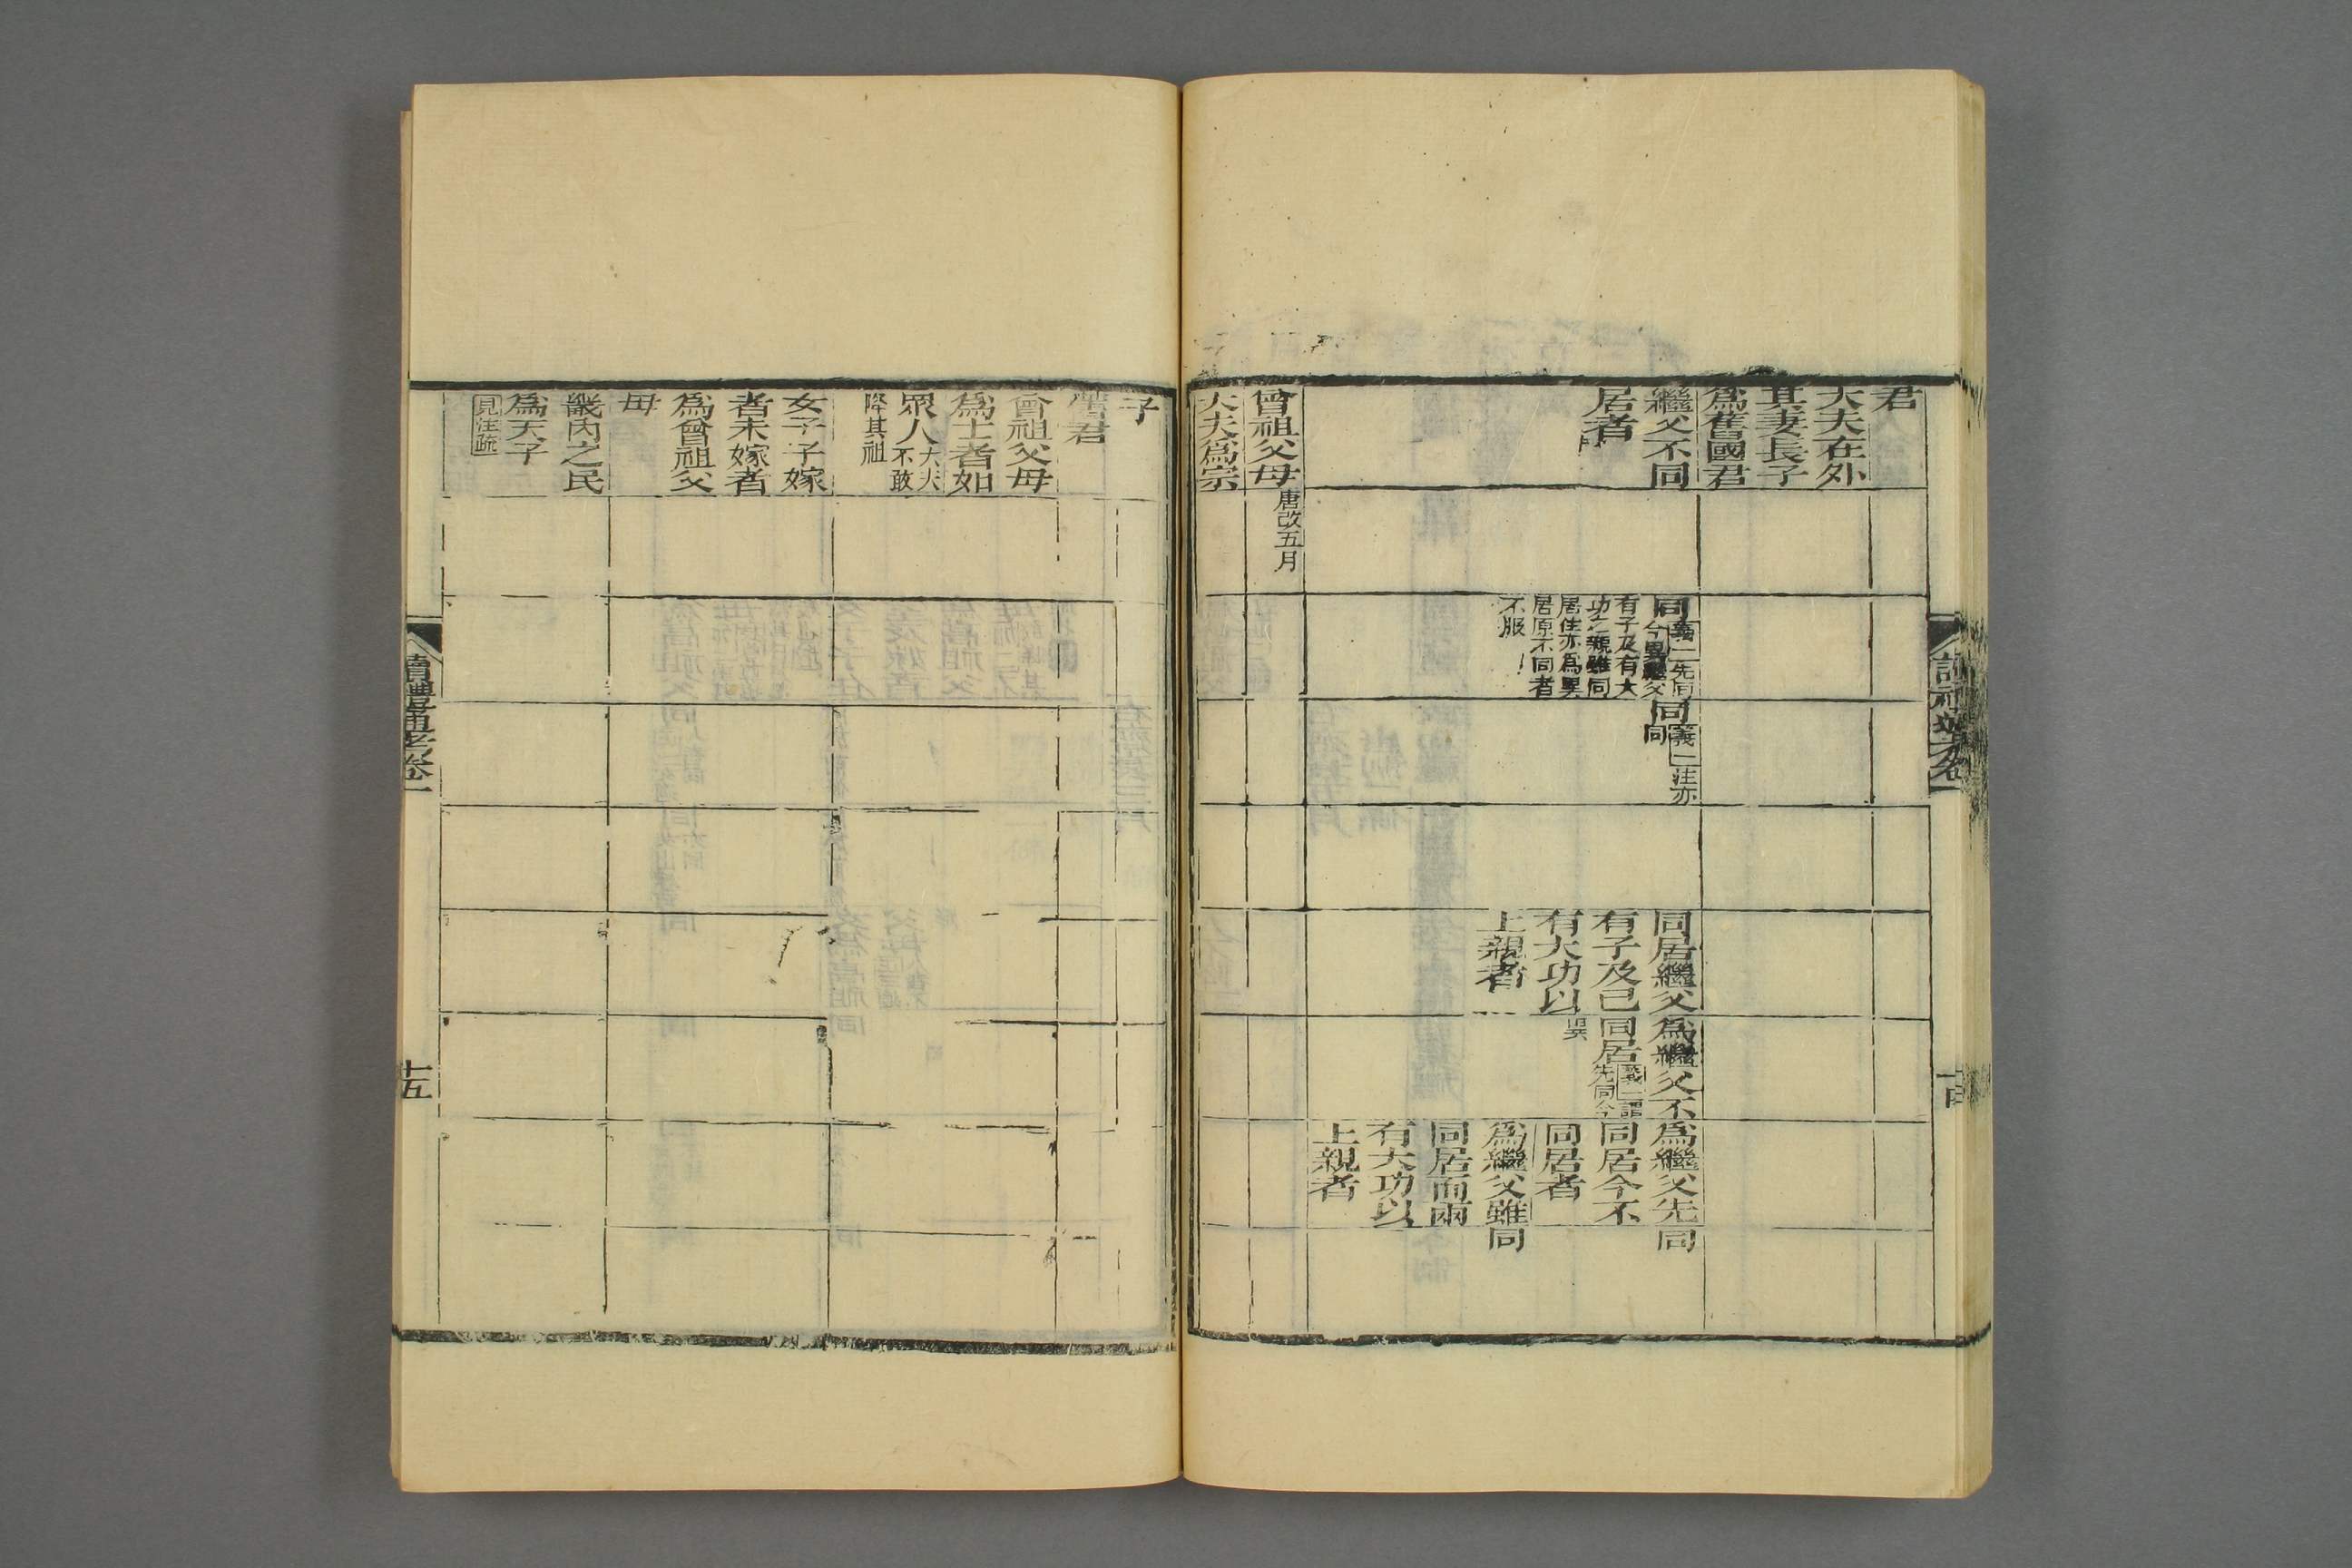 君
大夫在外
其妻長子
爲舊國君
繼父不同
居者
同義二先同
今異繼父
有子及有大
功之親雖同
居住亦爲異
居原不同者
不服
同義二注亦
同
同居繼父
有子及已
有大功以
上親者
爲繼父不
同居義二謂
先同今
異
爲繼父先同
同居今不
同居者
爲繼父雖同
同居而兩
有大功以
上親者
曾祖父母
唐改五月
大夫爲宗
讀禮通考卷一
子
舊君
曾祖父母
爲士者如
眾人大夫
不敢
降其祖
女子子嫁
者未嫁者
爲曾祖父
母
畿內之民
爲天子
見注疏
讀禮通考卷一
十五